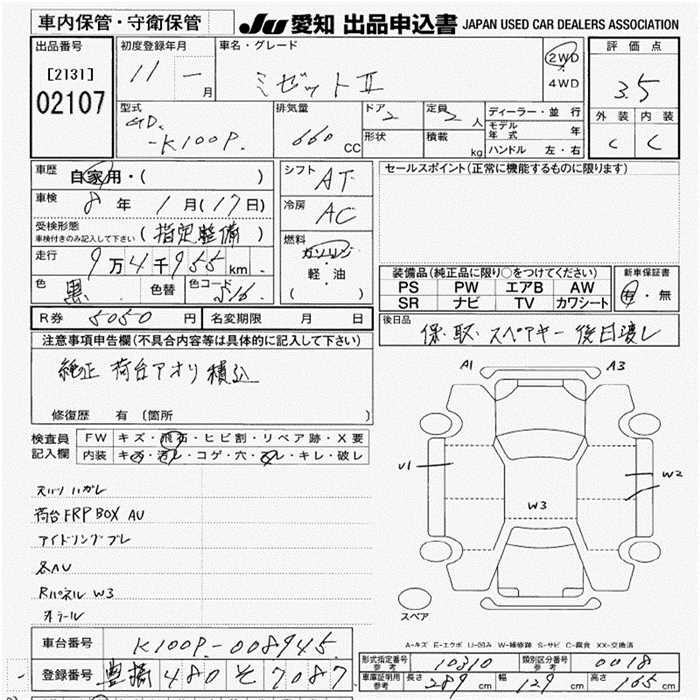 車内保管・守衛保管
JU 愛知 出品申込書 JAPAN USED CAR DEALERS ASSOCIATION
出品番号
[2131]
02107
初度登録年月
11 - 月
車名・グレード
ミゼットⅡ
2WD
4WD
評価点
3.5
外装 内装
C C
型式
GD. -K100P.
排気量
660 CC
ドア 2
形状
定員 2 人
積載 kg
ディーラー・並行
モデル年式 年
ハンドル 左・右
車歴
自家用・( )
車検
8年 1月(17日)
受検形態
車検付きのみ記入して下さい (指定整備)
走行
9万4千955km.
色 黒 色替 色コード 516
シフト AT
冷房 AC
燃料
ガソリン
・
軽・油
( )
セールスポイント(正常に機能するものに限ります)
装備品(純正品に限り○をつけてください)
PS PW エアB AW
SR ナビ TV カワシート
新車保証書
有・無
R券 5050円 名変期限 月 日
後日品
保・取・スペアキー後日渡し
注意事項申告欄(不具合内容等は具体的に記入して下さい)
純正荷台アオリ積込
修復歴 有(箇所
検査員
記入欄
FW キズ・飛石・ヒビ割・リペア跡・X要
内装 キズ・汚レ・コゲ・穴・スレ・キレ・破レ
スリツハガレ
荷台FRP BOX AU
アイドリングブレ
各AU
Rパネル W3
A1 A3
U1
W2
W3
スペア
A-キズ E-エクボ U-凹み W-補修跡 S-サビ C-腐食 XX-交換済
車台番号 K100P.-008945.
登録番号 豊橋 480 そ 7087
形式指定番号 参考 10310
類別区分番号 参考 0018
車庫証明用 参考 長さ 289 cm 幅 129 cm 高さ 165 cm